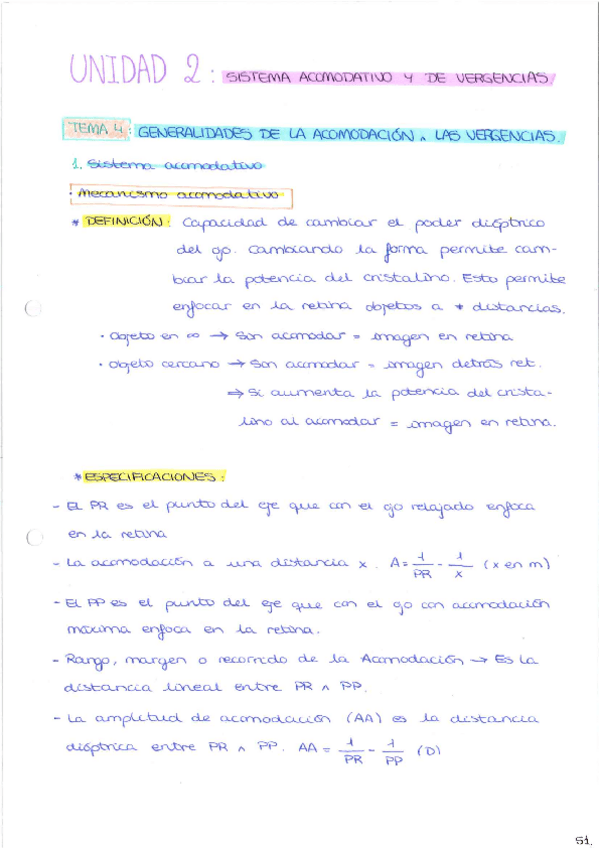 UNIDAD 2: SISTEMA ACOMODATIVO Y DE VERGENCIAS
TEMA 4: GENERALIDADES DE LA ACOMODACIÓN ʌ LAS VERGENCIAS.
1. Sistema acomodativo
· Mecanismo acomodativo
* DEFINICIÓN: Capacidad de cambiar el poder dióptrico
del ojo. Cambiando la forma permite cam-
biar la potencia del cristalino. Esto permite
enfocar en la retina objetos a ≠ distancias.
· Objeto en ∞ → Sin acomodar = imagen en retina
· Objeto cercano → Sin acomodar = imagen detrás ret.
⇒ Si aumenta la potencia del crista-
lino al acomodar = imagen en retina.
* ESPECIFICACIONES:
- El PR es el punto del eje que con el ojo relajado enfoca
en la retina
- La acomodación a una distancia x. A = 1/PR - 1/x (x en m)
- El PP es el punto del eje que con el ojo con acomodación
máxima enfoca en la retina.
- Rango, margen o recorrido de la Acomodación → Es la
distancia lineal entre PR ʌ PP.
- La amplitud de acomodación (AA) es la distancia
dióptrica entre PR ʌ PP. AA = 1/PR - 1/PP (D)
51.